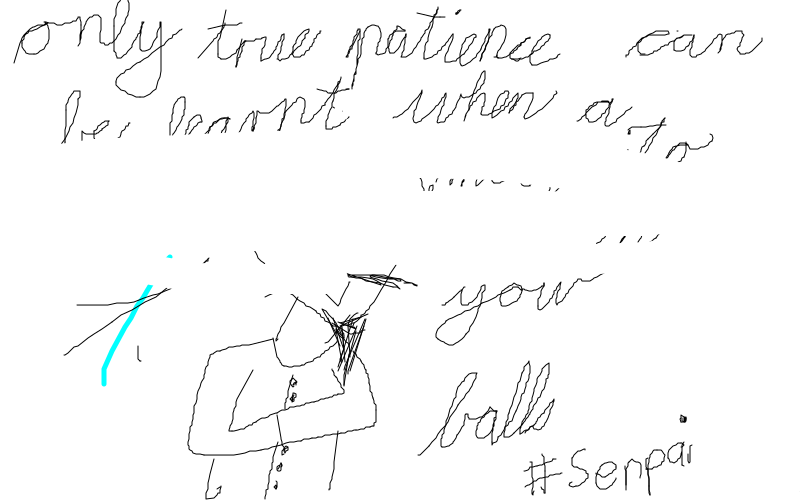 only true patience can
be learnt when a
you
balls
#Senpai